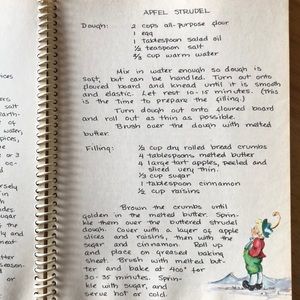 APFEL STRUDEL
Dough: 2 cups all-purpose flour
1 egg
1 tablespoon salad oil
½ teaspoon salt
⅓ cup warm water
Mix in water enough so dough is
soft, but can be handled. Turn out onto
floured board and knead until it is smooth
and elastic. Let rest 10-15 minutes. (This
is the time to prepare the filling.)
Turn dough out onto floured board
and roll out as thin as possible.
Brush over the dough with melted
butter.
Filling: ½ cup dry rolled bread crumbs
4 tablespoons melted butter
4 large tart apples, peeled and
sliced very thin.
⅓ cup sugar
1 tablespoon cinnamon
½ cup raisins
Brown the crumbs until
golden in the melted butter. Sprin-
kle them over the buttered strudel
dough. Cover with a layer of apple
slices and raisins, then with the
sugar and cinnamon. Roll up
and place on greased baking
sheet. Brush with melted but-
ter and bake at 400° for
30 minutes. Sprin-
kle with sugar, and
serve hot or cold.